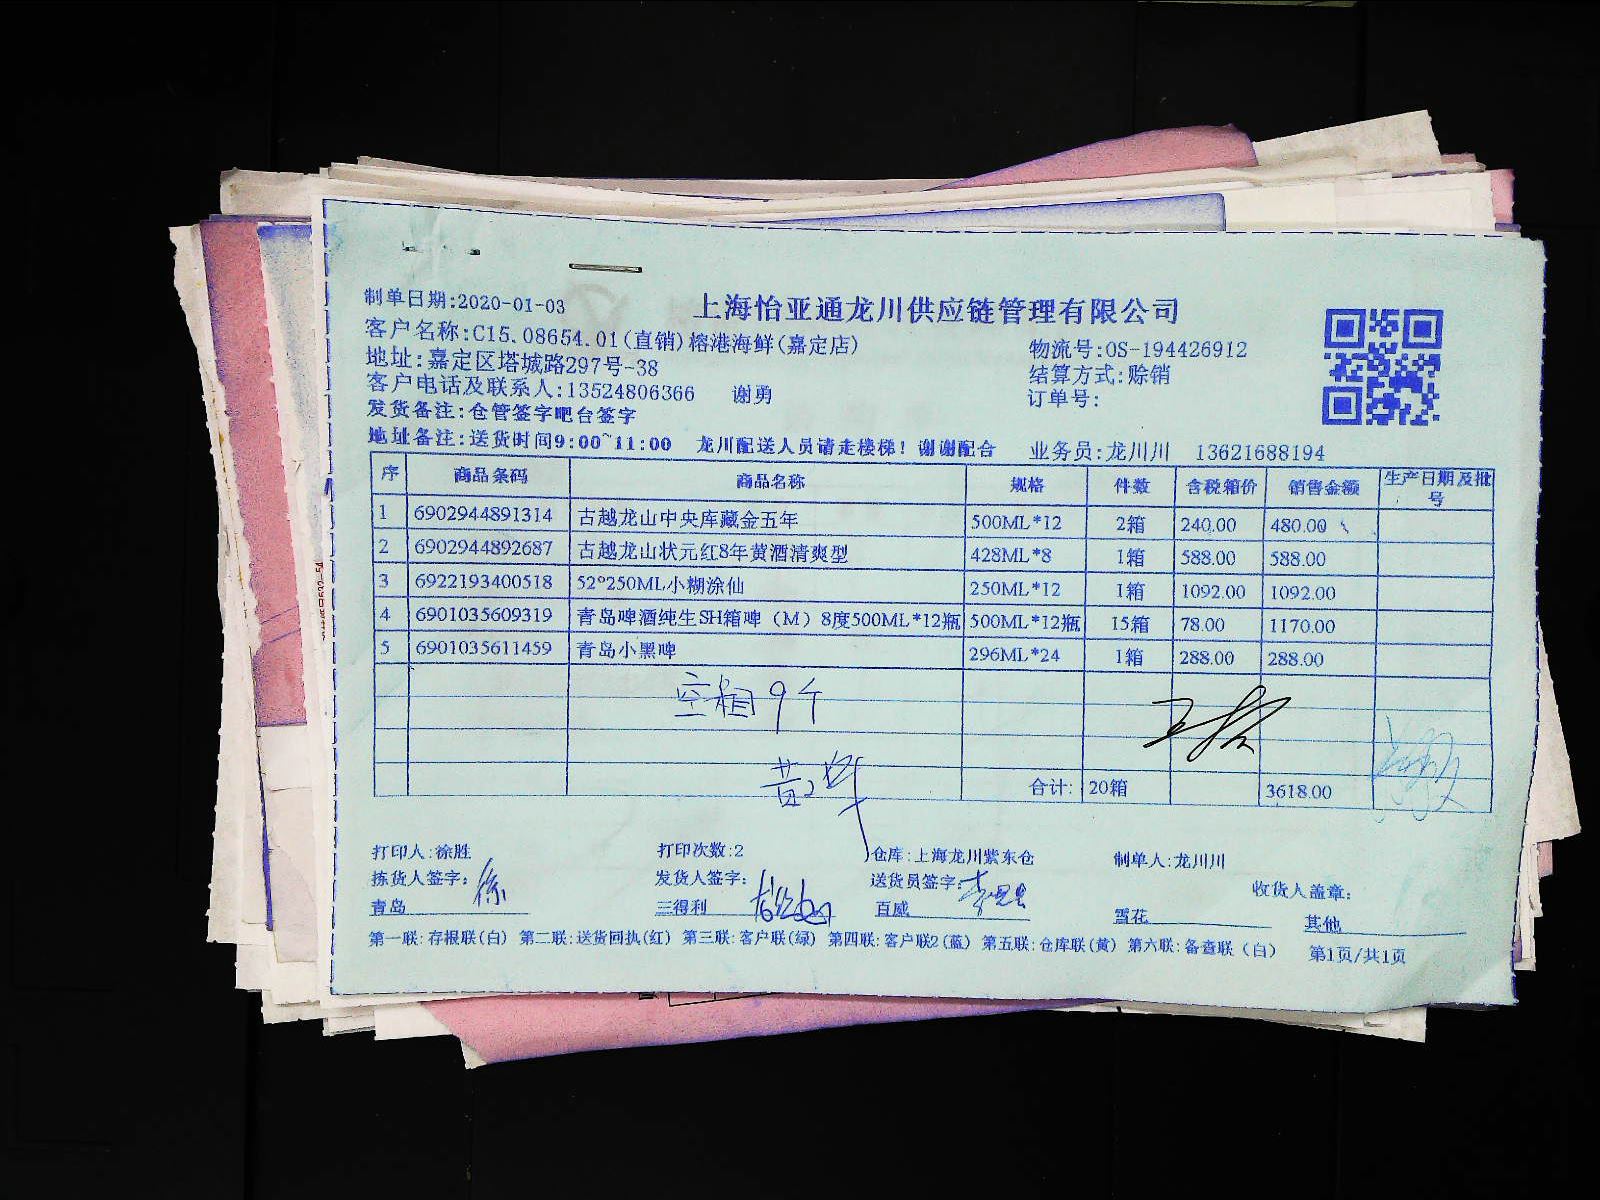 上海怡亚通龙川供应链管理有限公司
制单日期:2020-01-03
客户名称:C15.08654.01(直销)榕港海鲜(嘉定店)
物流号:OS-194426912
地址:嘉定区塔城路297号-38
结算方式:赊销
客户电话及联系人:13524806366 谢勇
订单号:
发货备注:仓管签字吧台签字
地址备注:送货时间9:00~11:00 龙川配送人员请走楼梯！谢谢配合 业务员:龙川川 13621688194
序 商品条码 商品名称 规格 件数 含税箱价 销售金额 生产日期及批号
1 6902944891314 古越龙山中央库藏金五年 500ML*12 2箱 240.00 480.00
2 6902944892687 古越龙山状元红8年黄酒清爽型 428ML*8 1箱 588.00 588.00
3 6922193400518 52°250ML小糊涂仙 250ML*12 1箱 1092.00 1092.00
4 6901035609319 青岛啤酒纯生SH箱啤（M）8度500ML*12瓶 500ML*12瓶 15箱 78.00 1170.00
5 6901035611459 青岛小黑啤 296ML*24 1箱 288.00 288.00
空箱9个
合计: 20箱 3618.00
打印人:徐胜 打印次数:2 仓库:上海龙川紫东仓 制单人:龙川川
拣货人签字: 徐 发货人签字: 送货员签字: 收货人盖章:
青岛 三得利 百威 雪花 其他
第一联:存根联(白) 第二联:送货回执(红) 第三联:客户联(绿) 第四联:客户联2(蓝) 第五联:仓库联(黄) 第六联:备查联（白） 第1页/共1页